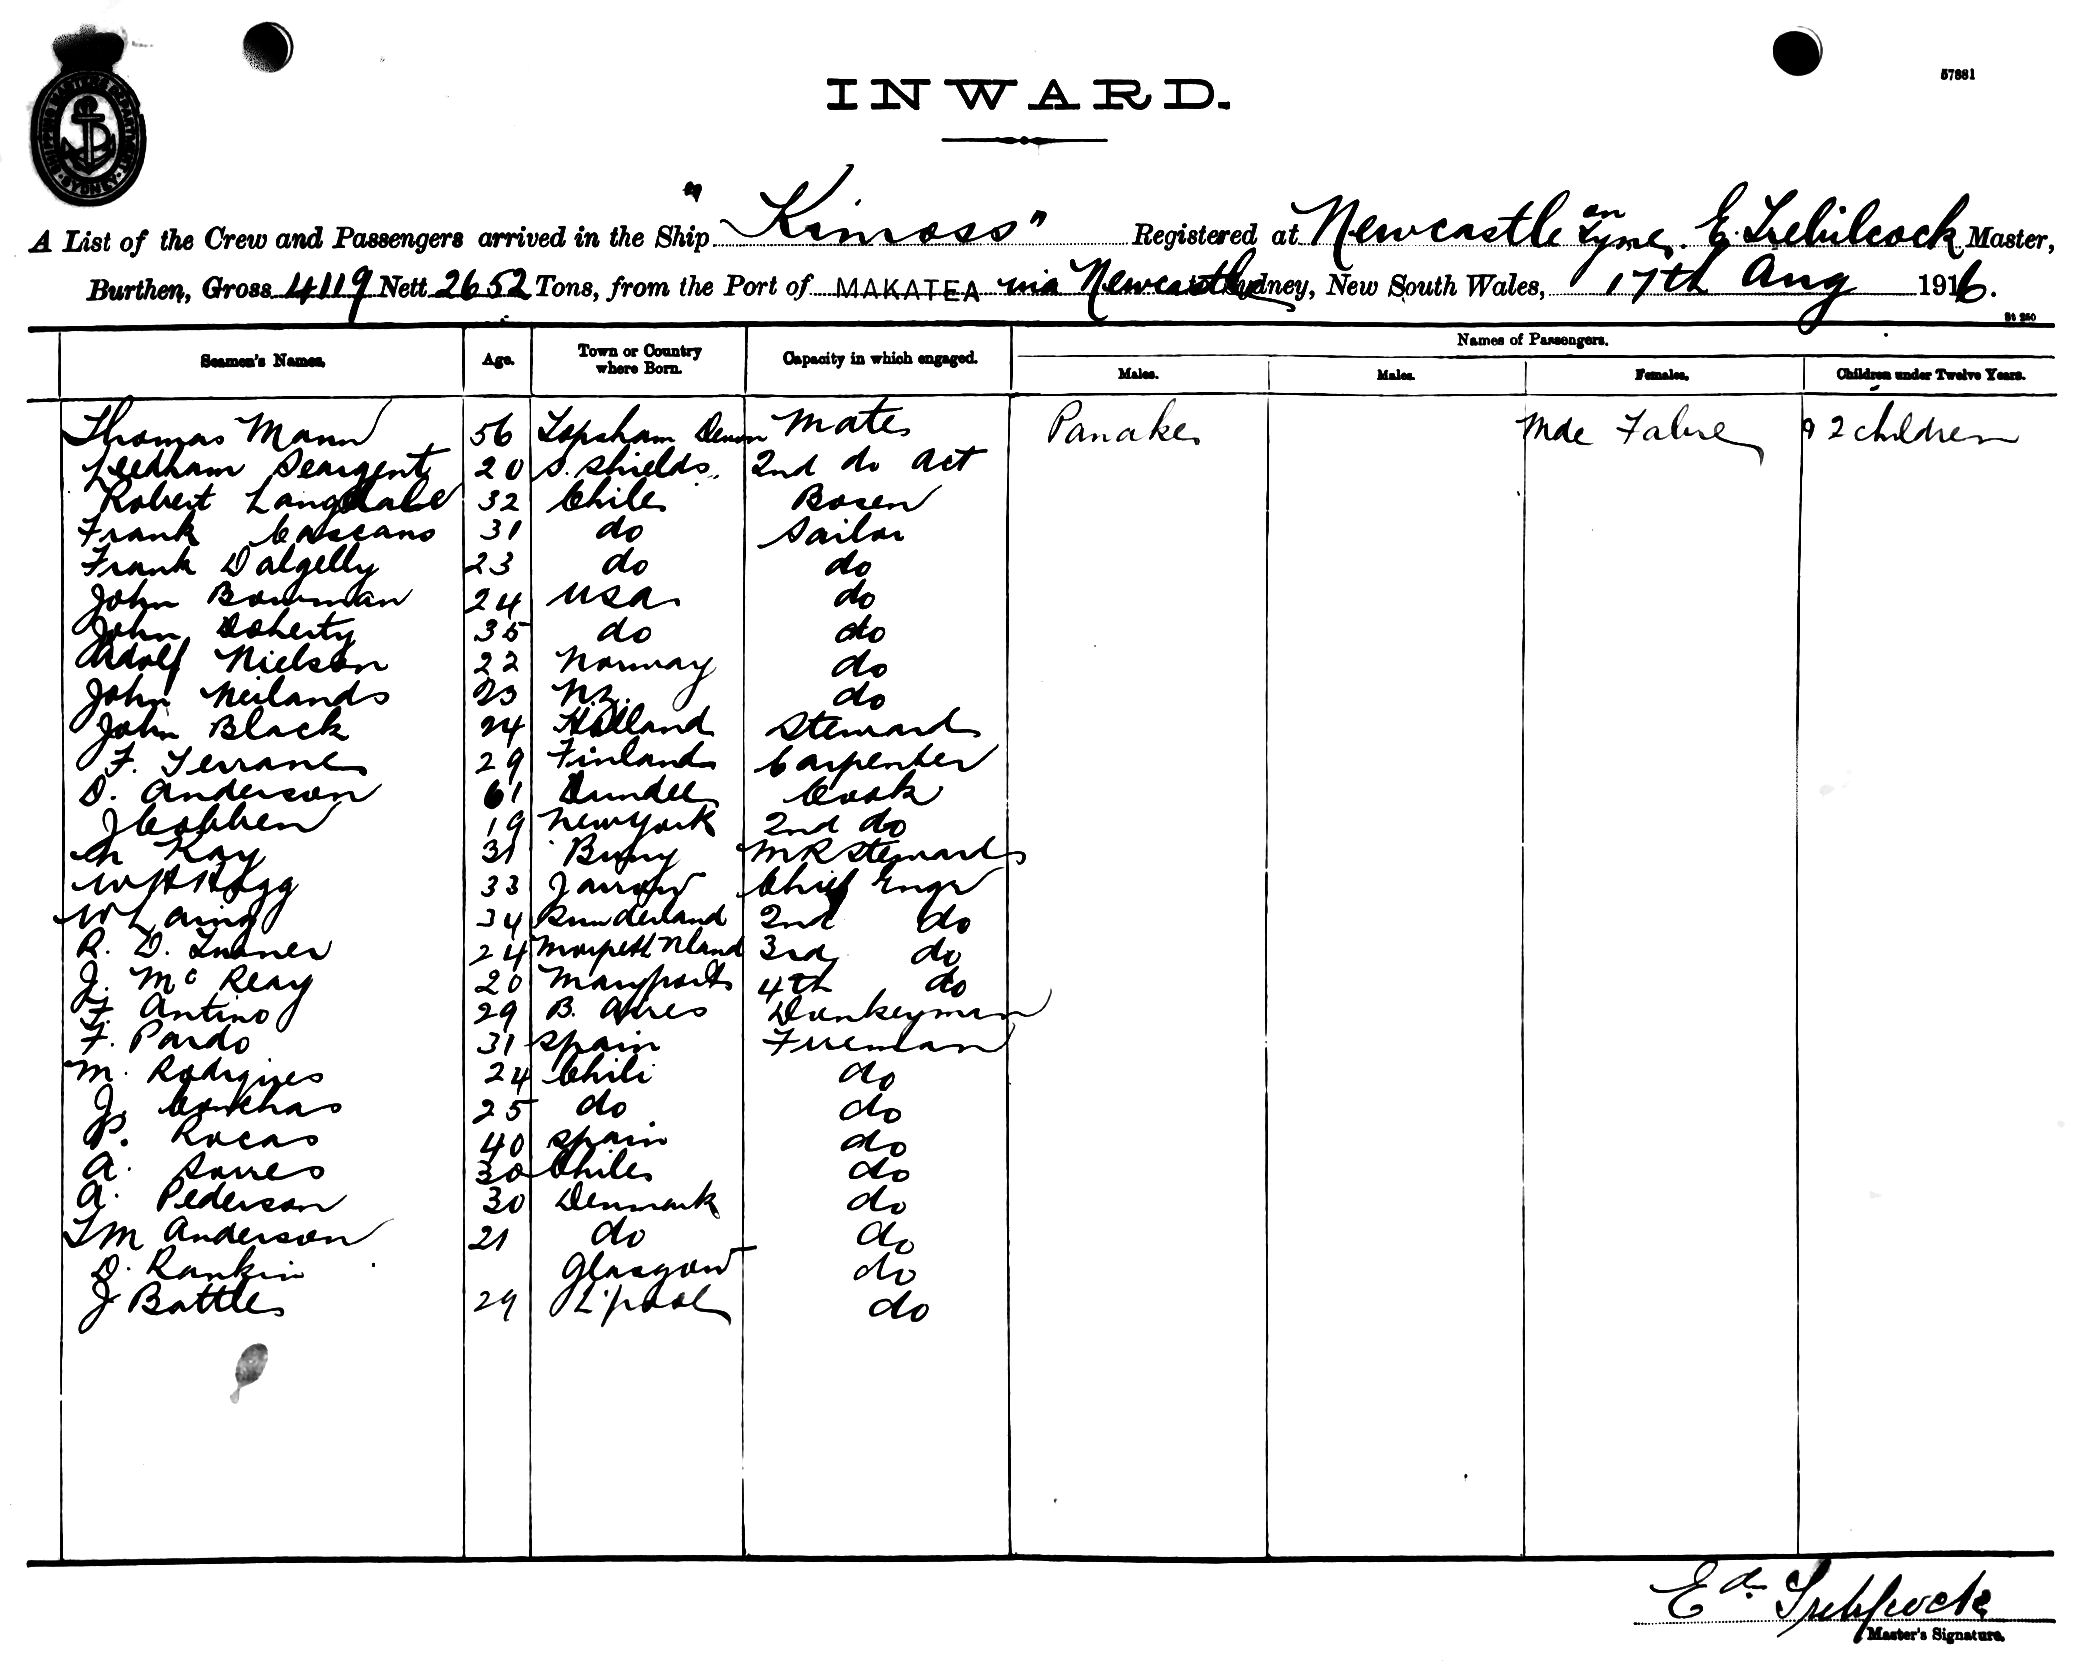 INWARD.
57881
SHIPPING MASTER'S DEPARTMENT SYDNEY
A List of the Crew and Passengers arrived in the Ship "Kinross" Registered at Newcastle on Tyne. E. Trebilcock Master,
Burthen, Gross 4119 Nett 2652 Tons, from the Port of MAKATEA via Newcastle Sydney, New South Wales, 17th Aug 1916.
St 250
Seamen's Names. Age. Town or Country where Born. Capacity in which engaged. Names of Passengers.
Males. Males. Females. Children under Twelve Years.
Thomas Mann 56 Topsham Devon Mate Panake Mde Fabre & 2 children
Leedham Seargent 20 S. Shields 2nd do Act
Robert Langdale 32 Chile Bosen
Frank Cascano 31 do Sailor
Frank Dalgelly 23 do do
John Bowman 24 USA do
John Doherty 35 do do
Adolf Nielson 22 Norway do
John Neilands 23 N.Z. do
John Black 24 Holland Steward
F. Terrane 29 Finland Carpenter
D. Anderson 61 Dundee Cook
J Cobben 19 New York 2nd do
Kay 31 Bury M R Steward
W H Hogg 33 Jarrow Chief Engr
W Laing 34 Sunderland 2nd do
R. D. Turner 24 Morpeth Nland 3rd do
J. McReay 20 Maryport 4th do
F. Antino 29 B. Aires Donkeyman
F. Pardo 31 Spain Fireman
M. Rodrigues 24 Chili do
J. Conchas 25 do do
P. Rocas 40 Spain do
A. Sorres 30 Chile do
A. Pederson 30 Denmark do
T M Anderson 21 do do
D. Rankin Glasgow do
J Battle 29 L'pool do
Ed. Trebilcock
Master's Signature.